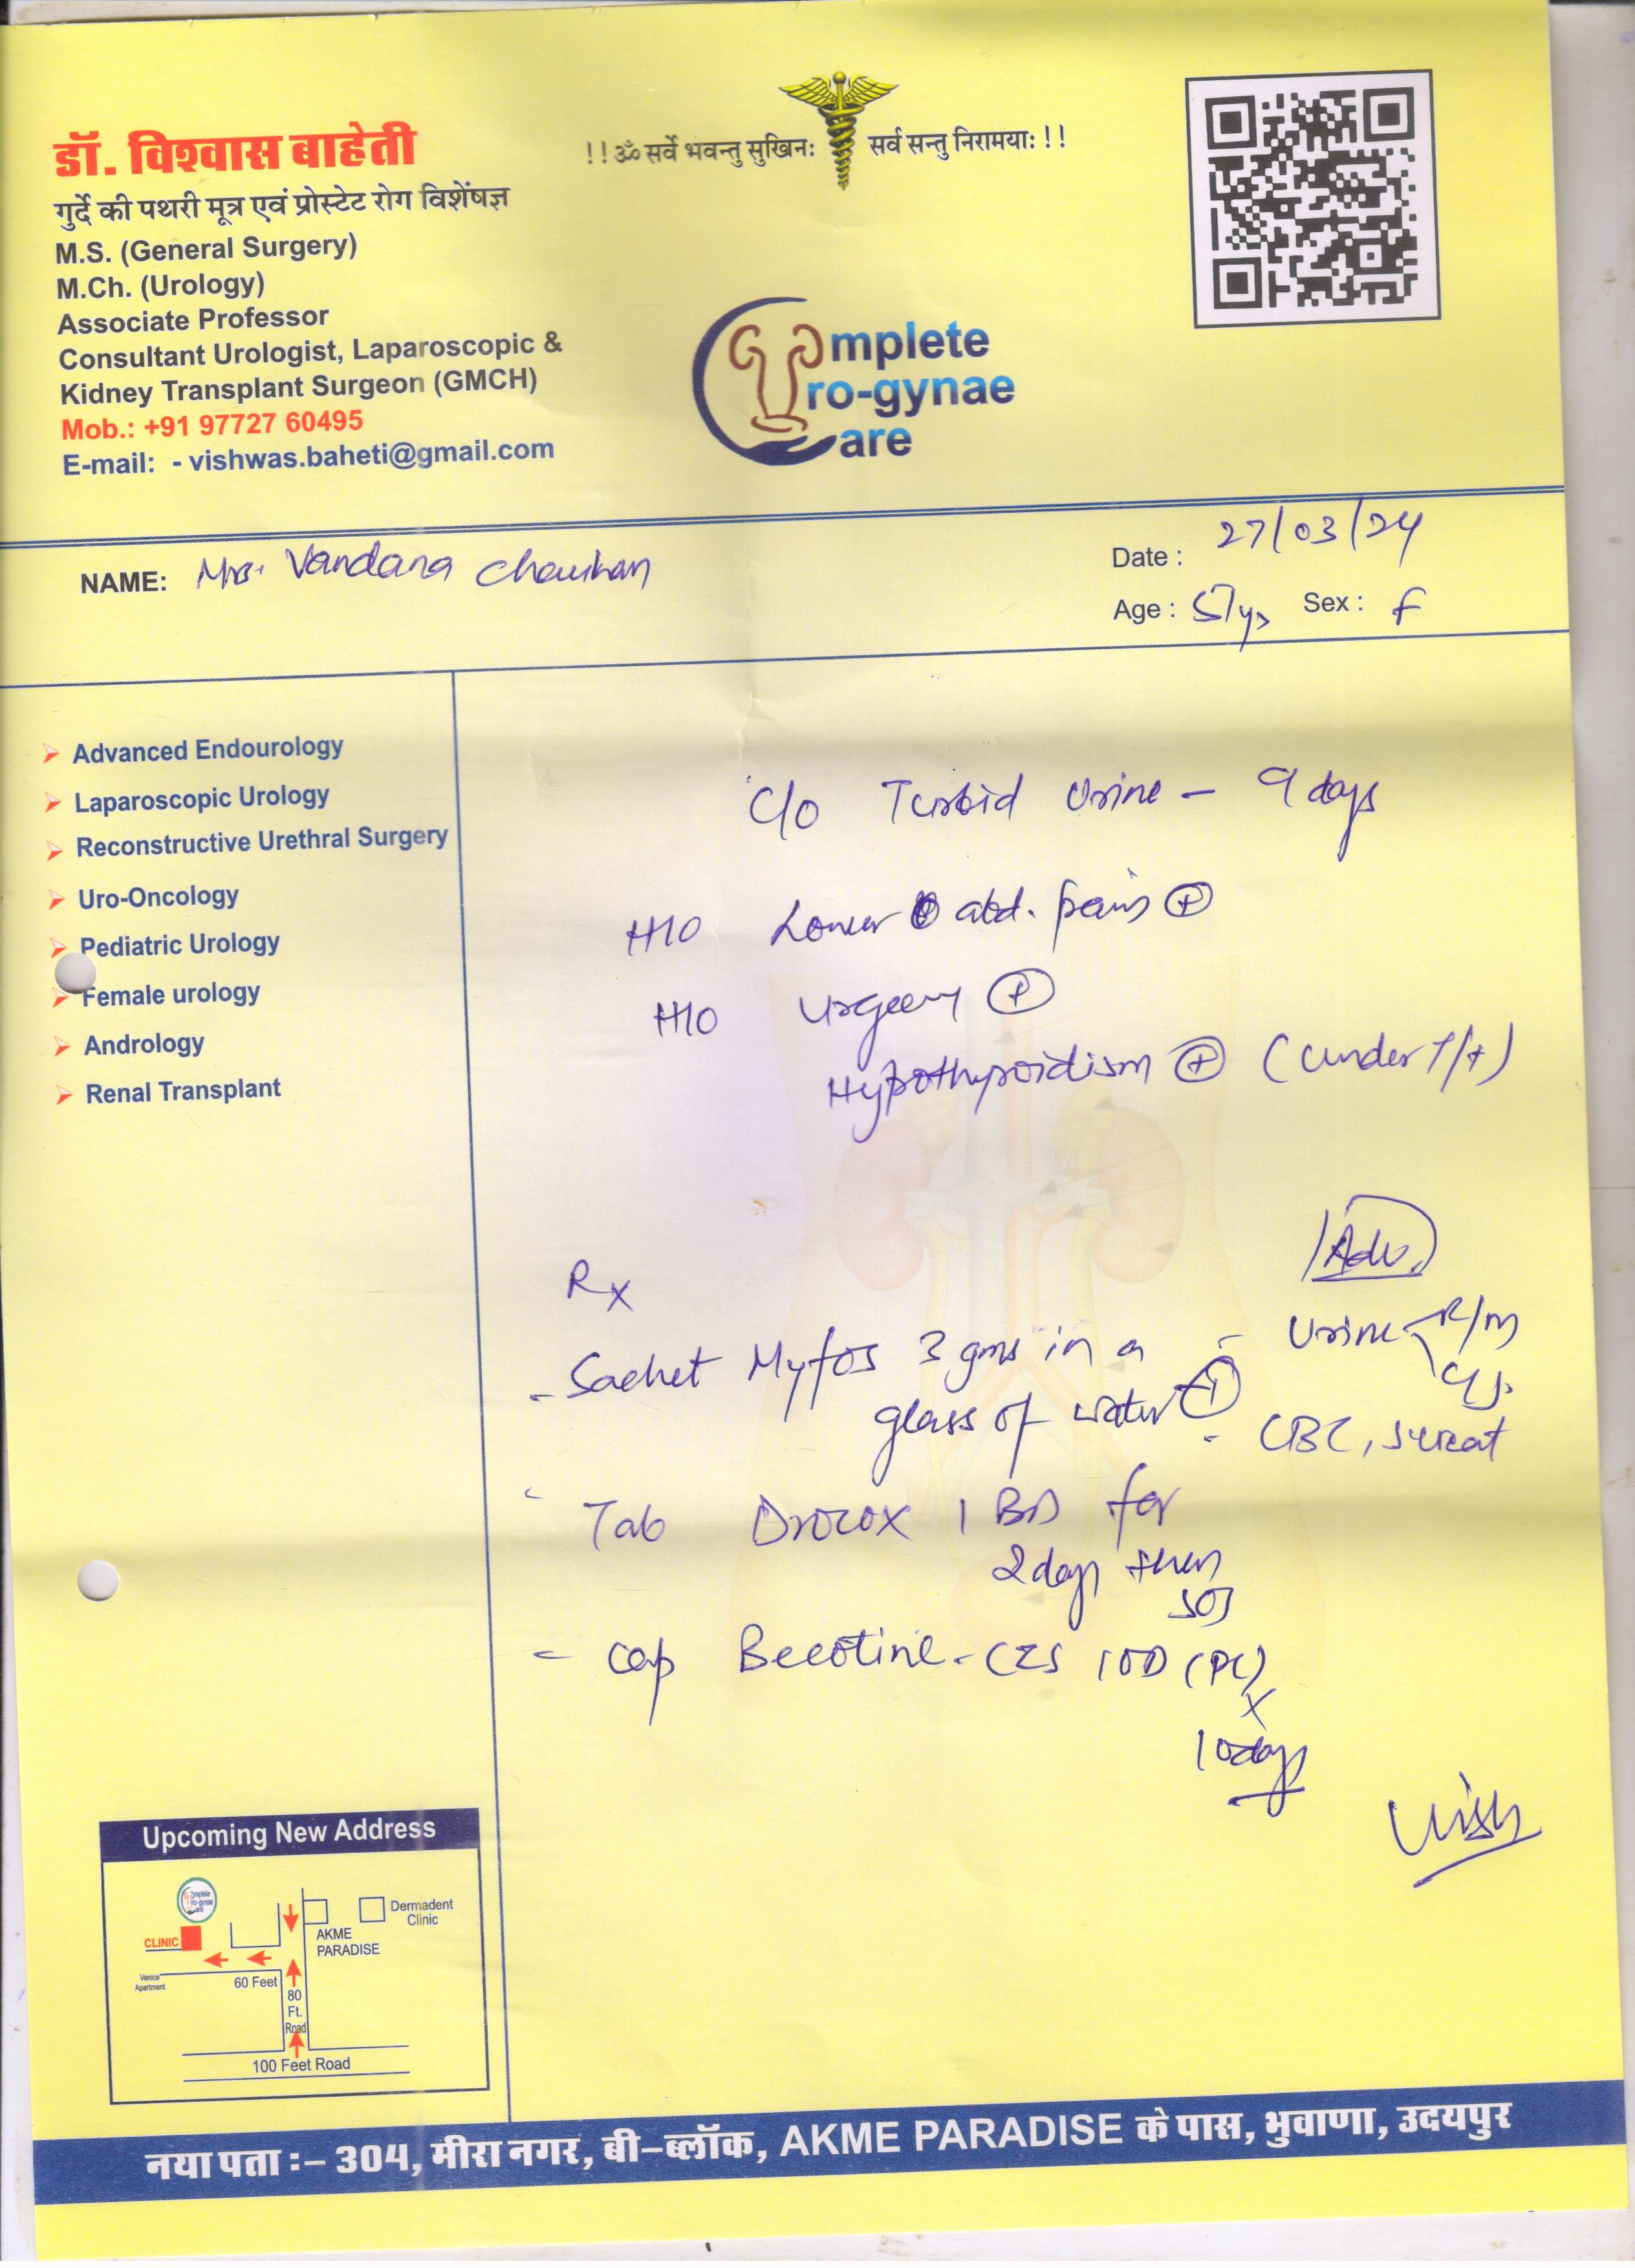 डॉ. विश्वास बाहेती
गुर्दे की पथरी मूत्र एवं प्रोस्टेट रोग विशेंषज्ञ
M.S. (General Surgery)
M.Ch. (Urology)
Associate Professor
Consultant Urologist, Laparoscopic &
Kidney Transplant Surgeon (GMCH)
Mob.: +91 97727 60495
E-mail: - vishwas.baheti@gmail.com
!!ॐ सर्वे भवन्तु सुखिनः सर्व सन्तु निरामयाः !!
omplete
ro-gynae
are
NAME: Mrs. Vandana Chauhan
Date : 27/03/24
Age : 57ys Sex : F
Advanced Endourology
Laparoscopic Urology
Reconstructive Urethral Surgery
Uro-Oncology
Pediatric Urology
Female urology
Andrology
Renal Transplant
C/o Turbid Urine - 9 days
H/O Lower abd. pain ⊕
H/O Urgency ⊕
Hypothyroidism ⊕ (under T/t)
Rx
- Sachet Myfos 3 gms in a
glass of water ①
- Tab Drocox 1 BD for
2 days then
SOS
- Cap Becotine-CZS 1 OD (PC)
x
10 days
Adv.
- Urine R/m
C/S
- CBC, S. creat
Vish
Upcoming New Address
omplete
ro-gynae
are
CLINIC
AKME
PARADISE
Dermadent
Clinic
Venice
Apartment
60 Feet
80
Ft.
Road
100 Feet Road
नया पता :– 304, मीरा नगर, बी–ब्लॉक, AKME PARADISE के पास, भुवाणा, उदयपुर